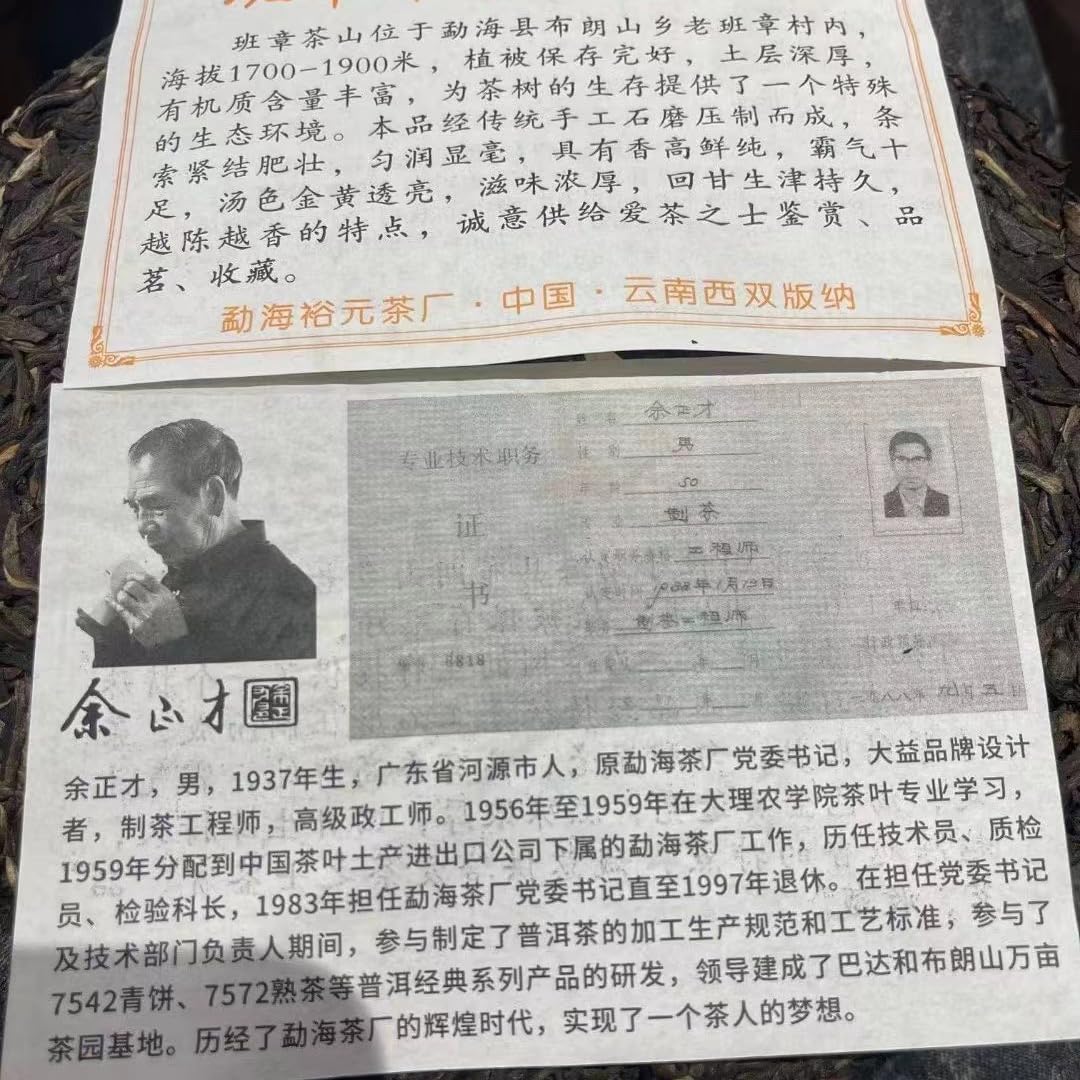 班章茶山位于勐海县布朗山乡老班章村内，
海拔1700-1900米，植被保存完好，土层深厚，
有机质含量丰富，为茶树的生存提供了一个特殊
的生态环境。本品经传统手工石磨压制而成，条
索紧结肥壮，匀润显毫，具有香高鲜纯，霸气十
足，汤色金黄透亮，滋味浓厚，回甘生津持久，
越陈越香的特点，诚意供给爱茶之士鉴赏、品
茗、收藏。
勐海裕元茶厂·中国·云南西双版纳
专业技术职务
证
书
8818
余正才
男
50
制茶
工程师
制茶工程师
一九八八年
余正才
余正才，男，1937年生，广东省河源市人，原勐海茶厂党委书记，大益品牌设计
者，制茶工程师，高级政工师。1956年至1959年在大理农学院茶叶专业学习，
1959年分配到中国茶叶土产进出口公司下属的勐海茶厂工作，历任技术员、质检
员、检验科长，1983年担任勐海茶厂党委书记直至1997年退休。在担任党委书记
及技术部门负责人期间，参与制定了普洱茶的加工生产规范和工艺标准，参与了
7542青饼、7572熟茶等普洱经典系列产品的研发，领导建成了巴达和布朗山万亩
茶园基地。历经了勐海茶厂的辉煌时代，实现了一个茶人的梦想。